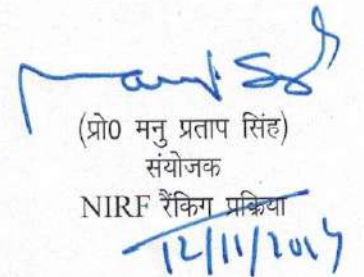 (प्रो0 मनु प्रताप सिंह)
संयोजक
NIRF रैंकिग प्रक्रिया
12/11/2014